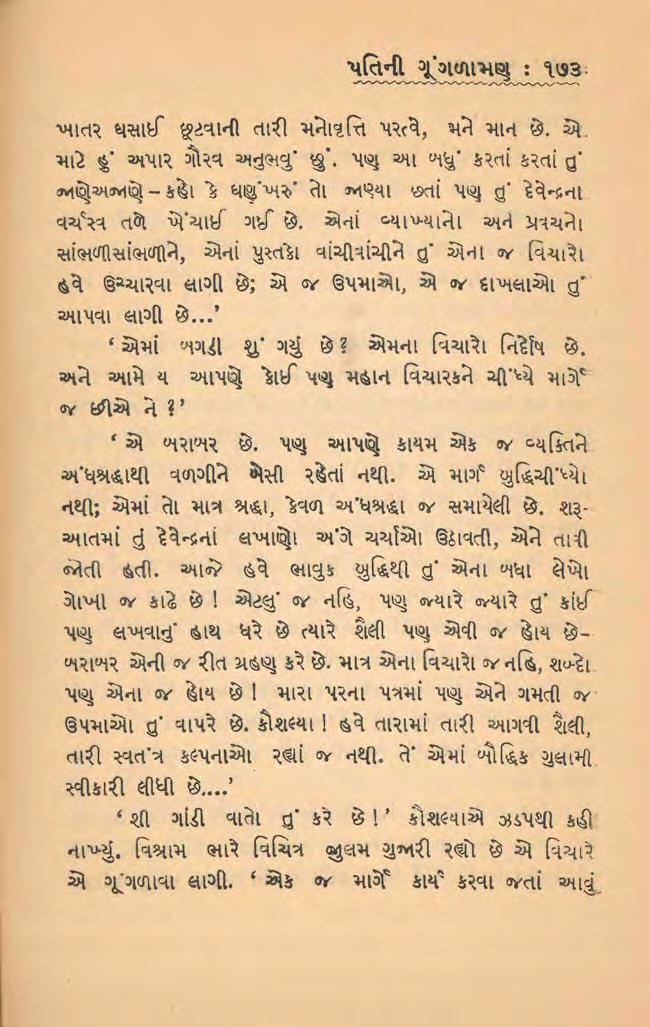 પતિની ગૂંગળામણ : ૧૭૩
ખાતર ઘસાઈ છૂટવાની તારી મનોવૃત્તિ પરત્વે, મને માન છે. એ
માટે હું અપાર ગૌરવ અનુભવું છું. પણ આ બધું કરતાં કરતાં તું
જાણેઅજાણે – કહો કે ઘણુંખરું તો જાણ્યા છતાં પણ તું દેવેન્દ્રના
વર્ચસ્વ તળે ખેંચાઈ ગઈ છે. એનાં વ્યાખ્યાનો અને પ્રવચનો
સાંભળીસાંભળીને, એનાં પુસ્તકો વાંચીવાંચીને તું એના જ વિચારો
હવે ઉચ્ચારવા લાગી છે; એ જ ઉપમાઓ, એ જ દાખલાઓ તું
આપવા લાગી છે...’
‘ એમાં બગડી શું ગયું છે? એમના વિચારો નિર્દોષ છે.
અને આમે ય આપણે કોઈ પણ મહાન વિચારકને ચીંધ્યે માર્ગે
જ છીએ ને ?’
‘ એ બરાબર છે. પણ આપણે કાયમ એક જ વ્યક્તિને
અંધશ્રદ્ધાથી વળગીને બેસી રહેતાં નથી. એ માર્ગ બુદ્ધિચીંધ્યો
નથી; એમાં તો માત્ર શ્રદ્ધા, કેવળ અંધશ્રદ્ધા જ સમાયેલી છે. શરૂ-
આતમાં તું દેવેન્દ્રનાં લખાણો અંગે ચર્ચાઓ ઉઠાવતી, એને તાવી
જોતી હતી. આજે હવે ભાવુક બુદ્ધિથી તું એના બધા લેખો
ગોખી જ કાઢે છે ! એટલું જ નહિ, પણ જ્યારે જ્યારે તું કાંઈ
પણ લખવાનું હાથ ધરે છે ત્યારે શૈલી પણ એવી જ હોય છે–
બરાબર એની જ રીત ગ્રહણ કરે છે. માત્ર એના વિચારો જ નહિ, શબ્દો
પણ એના જ હોય છે ! મારા પરના પત્રમાં પણ એને ગમતી જ
ઉપમાઓ તું વાપરે છે. કૌશલ્યા ! હવે તારામાં તારી આગવી શૈલી,
તારી સ્વતંત્ર કલ્પનાઓ રહ્યાં જ નથી. તેં એમાં બૌદ્ધિક ગુલામી
સ્વીકારી લીધી છે....’
‘ શી ગાંડી વાતો તું કરે છે !’ કૌશલ્યાએ ઝડપથી કહી
નાખ્યું. વિશ્રામ ભારે વિચિત્ર જુલમ ગુજારી રહ્યો છે એ વિચારે
એ ગૂંગળાવા લાગી. ‘ એક જ માર્ગે કાર્ય કરવા જતાં આવું